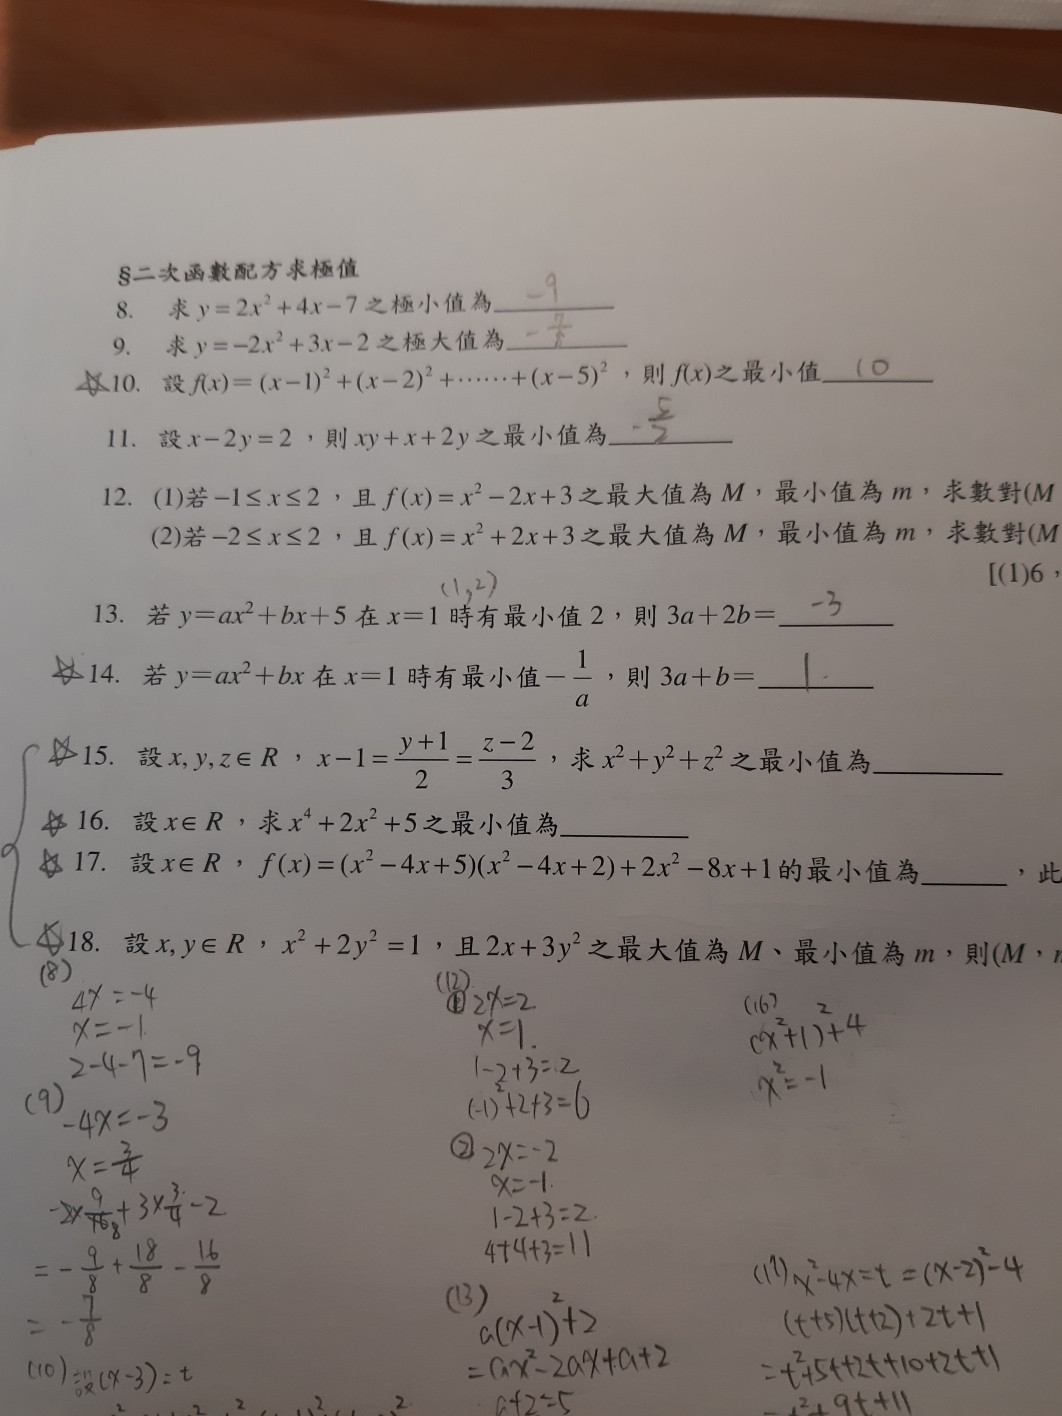 §二次函數配方求極值
8. 求 y=2x²+4x-7 之極小值為 -9
9. 求 y=-2x²+3x-2 之極大值為 -7/8
☆10. 設 f(x)=(x-1)²+(x-2)²+……+(x-5)²，則 f(x)之最小值 10
11. 設 x-2y=2，則 xy+x+2y 之最小值為 -5/2
12. (1)若 -1≤x≤2，且 f(x)=x²-2x+3 之最大值為 M，最小值為 m，求數對(M
(2)若 -2≤x≤2，且 f(x)=x²+2x+3 之最大值為 M，最小值為 m，求數對(M
[(1)6，
(1,2)
13. 若 y=ax²+bx+5 在 x=1 時有最小值 2，則 3a+2b= -3
☆14. 若 y=ax²+bx 在 x=1 時有最小值 -1/a，則 3a+b= 1
☆15. 設 x, y, z∈R，x-1=(y+1)/2=(z-2)/3，求 x²+y²+z² 之最小值為
☆16. 設 x∈R，求 x⁴+2x²+5 之最小值為
☆17. 設 x∈R，f(x)=(x²-4x+5)(x²-4x+2)+2x²-8x+1 的最小值為 ，此
☆18. 設 x, y∈R，x²+2y²=1，且 2x+3y² 之最大值為 M、最小值為 m，則(M，
(8)
4x=-4
x=-1
2-4-7=-9
(9)
-4x=-3
x=3/4
-2×9/16+3×3/4-2
=-9/8+18/8-16/8
=-7/8
(10)設(x-3)=t
(12)
①2x=2
x=1.
1-2+3=2
(-1)²+2+3=6
②2x=-2
x=-1.
1-2+3=2.
4+4+3=11
(13)
a(x-1)²+2
=ax²-2ax+a+2
a+2=5
(16)
(x²+1)²+4
x²=-1
(17) x²-4x=t=(x-2)²-4
(t+5)(t+2)+2t+1
=t²+5t+2t+10+2t+1
=t²+9t+11